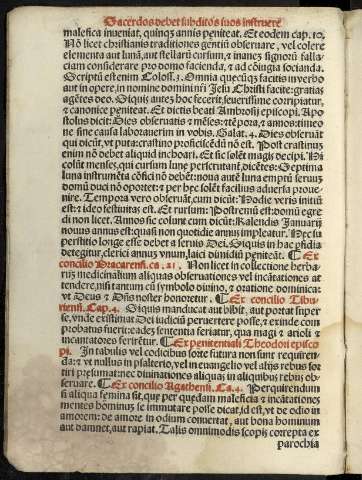 Sacerdos debet subditos suos instruere
malefica inueniat, quinqȝ annis peniteat. Et eodem cap. 10.
Nō licet christianis traditiones gentiū obseruare, vel colere
elementa aut lunā, aut stellarū cursum, et inanez signorū falla-
ciam considerare pro domo facienda, et ad cōiugia socianda.
Scriptū est enim Colos. 3. Omnia quecūqȝ facitis in verbo
aut in opere, in nomine domini nr̄i Jesu Christi facite: gratias
agētes deo. Siquis autez hoc fecerit, seuerissime corripiatur,
et canonice peniteat. Et dictis beati Ambrosij episcopi. Apo
stolus dicit: Dies obseruatis et mēses: et tēpora, et annos: timeo
ne sine causa laborauerim in vobis. Galat. 4. Dies obseruāt
qui dicūt, vt puta: crastino proficiscēdū nō est. Post crastinuȝ
enim nō debet aliquid inchoari. Et sic solēt magis decipi. Hi
colūt menses, qui cursum lune perscrutant, dicētes: Septima
luna instrumēta cōfici nō debēt: noua autē luna emptū seruuȝ
domū duci nō oportet: et per hec solēt facilius aduersa proue-
nire. Tempora vero obseruāt, cum dicūt: Hodie veris initiū
est: et ideo festiuitas est. Et rursum: Post tremū est: domū egre
di non licet. Annos sic colunt cum dicūt: Kalendis Januarij
nouus annus est: quasi non quotidie annuȝ impleatur. Hec su
perstitio longe esse debet a seruis Dei. Siquis in hac pfidia
detegitur, clerici annuȝ vnum, laici dimidiū peniteāt. ¶ Ex
concilio Bracarensi. ca. 21. Non licet in collectione herba-
ruȝ medicinaliuȝ aliquas obseruationes vel incātationes at
tendere, nisi tantum cū symbolo diuino, et oratione dominica:
vt Deus et Dn̄s noster honoretur. ¶ Ex concilio Tibu-
riensi. Cap. 4. Siquis manducat aut bibit, aut portat super
se, vnde existimat Dei iudiciū peruertere posse, et exinde com
probatus fuerit: eadeȝ sententia feriatur, qua magi et arioli et
incantatores feriētur. ¶ Ex penitentiali Theodori episco
pi. In tabulis vel codicibus sorte futura non sunt requiren-
da: et vt nullus in psalterio, vel in euangelio vel alijs rebus sor
tiri presumat: nec diuinationes aliquas in aliquibus rebus ob-
seruare. ¶ Ex concilio Agathensi. Ca. 4. Perquirendum
si aliqua femina sit, que per quedam maleficia et incātationes
mentes hominuȝ se immutare posse dicat, id est, vt de odio in
amorem: de amore in odium conuertat, aut bona hominum
aut damnet, aut rapiat. Talis omnimodis scopis correpta ex
parochia